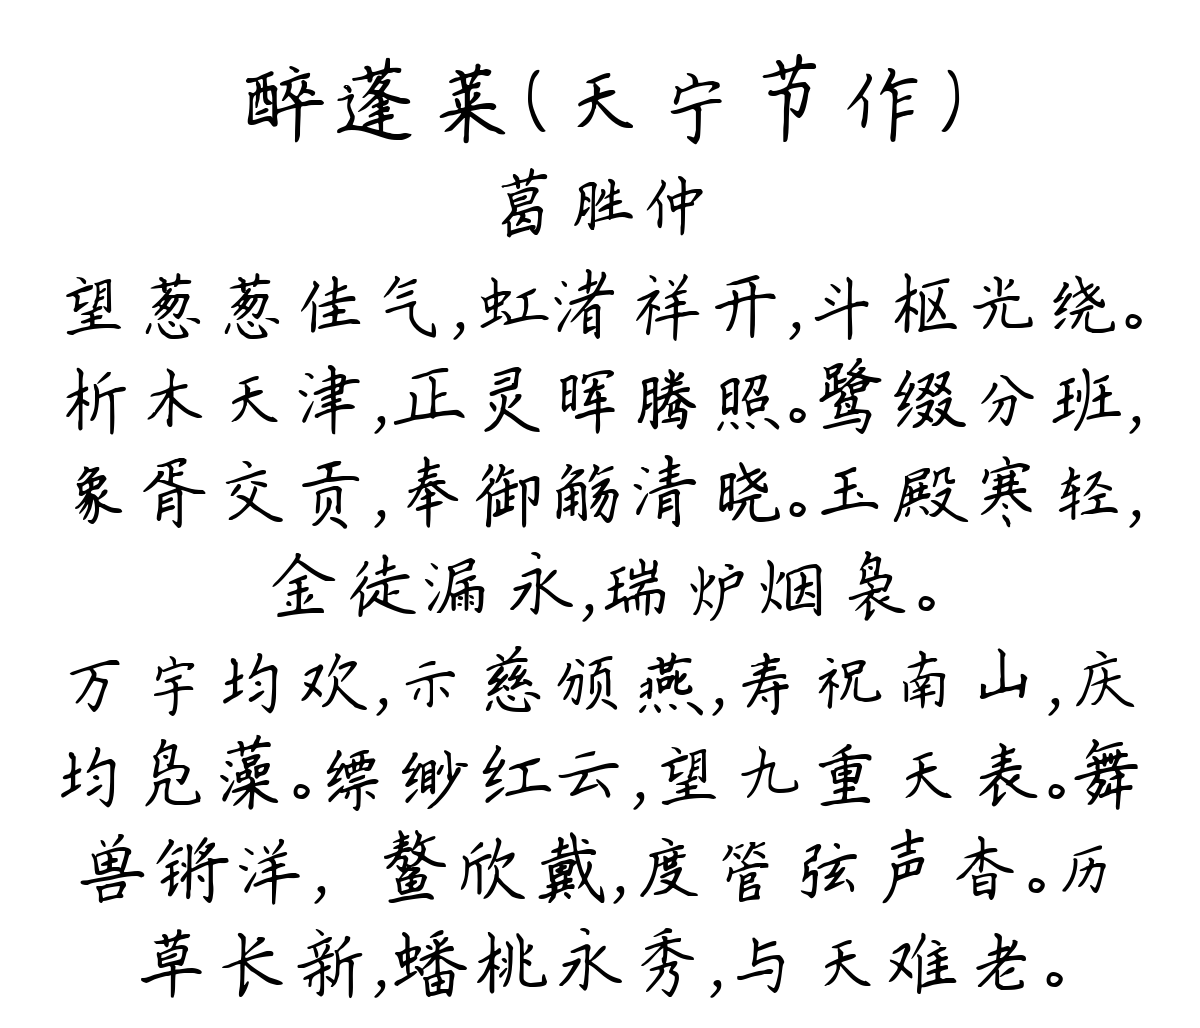 醉蓬莱(天宁节作)
葛胜仲
望葱葱佳气,虹渚祥开,斗枢光绕。
析木天津,正灵晖腾照。鹭缀分班,
象胥交贡,奉御觞清晓。玉殿寒轻,
金徒漏永,瑞炉烟袅。
万宇均欢,示慈颁燕,寿祝南山,庆
均凫藻。缥缈红云,望九重天表。舞
兽锵洋，鳌欣戴,度管弦声杳。历
草长新,蟠桃永秀,与天难老。